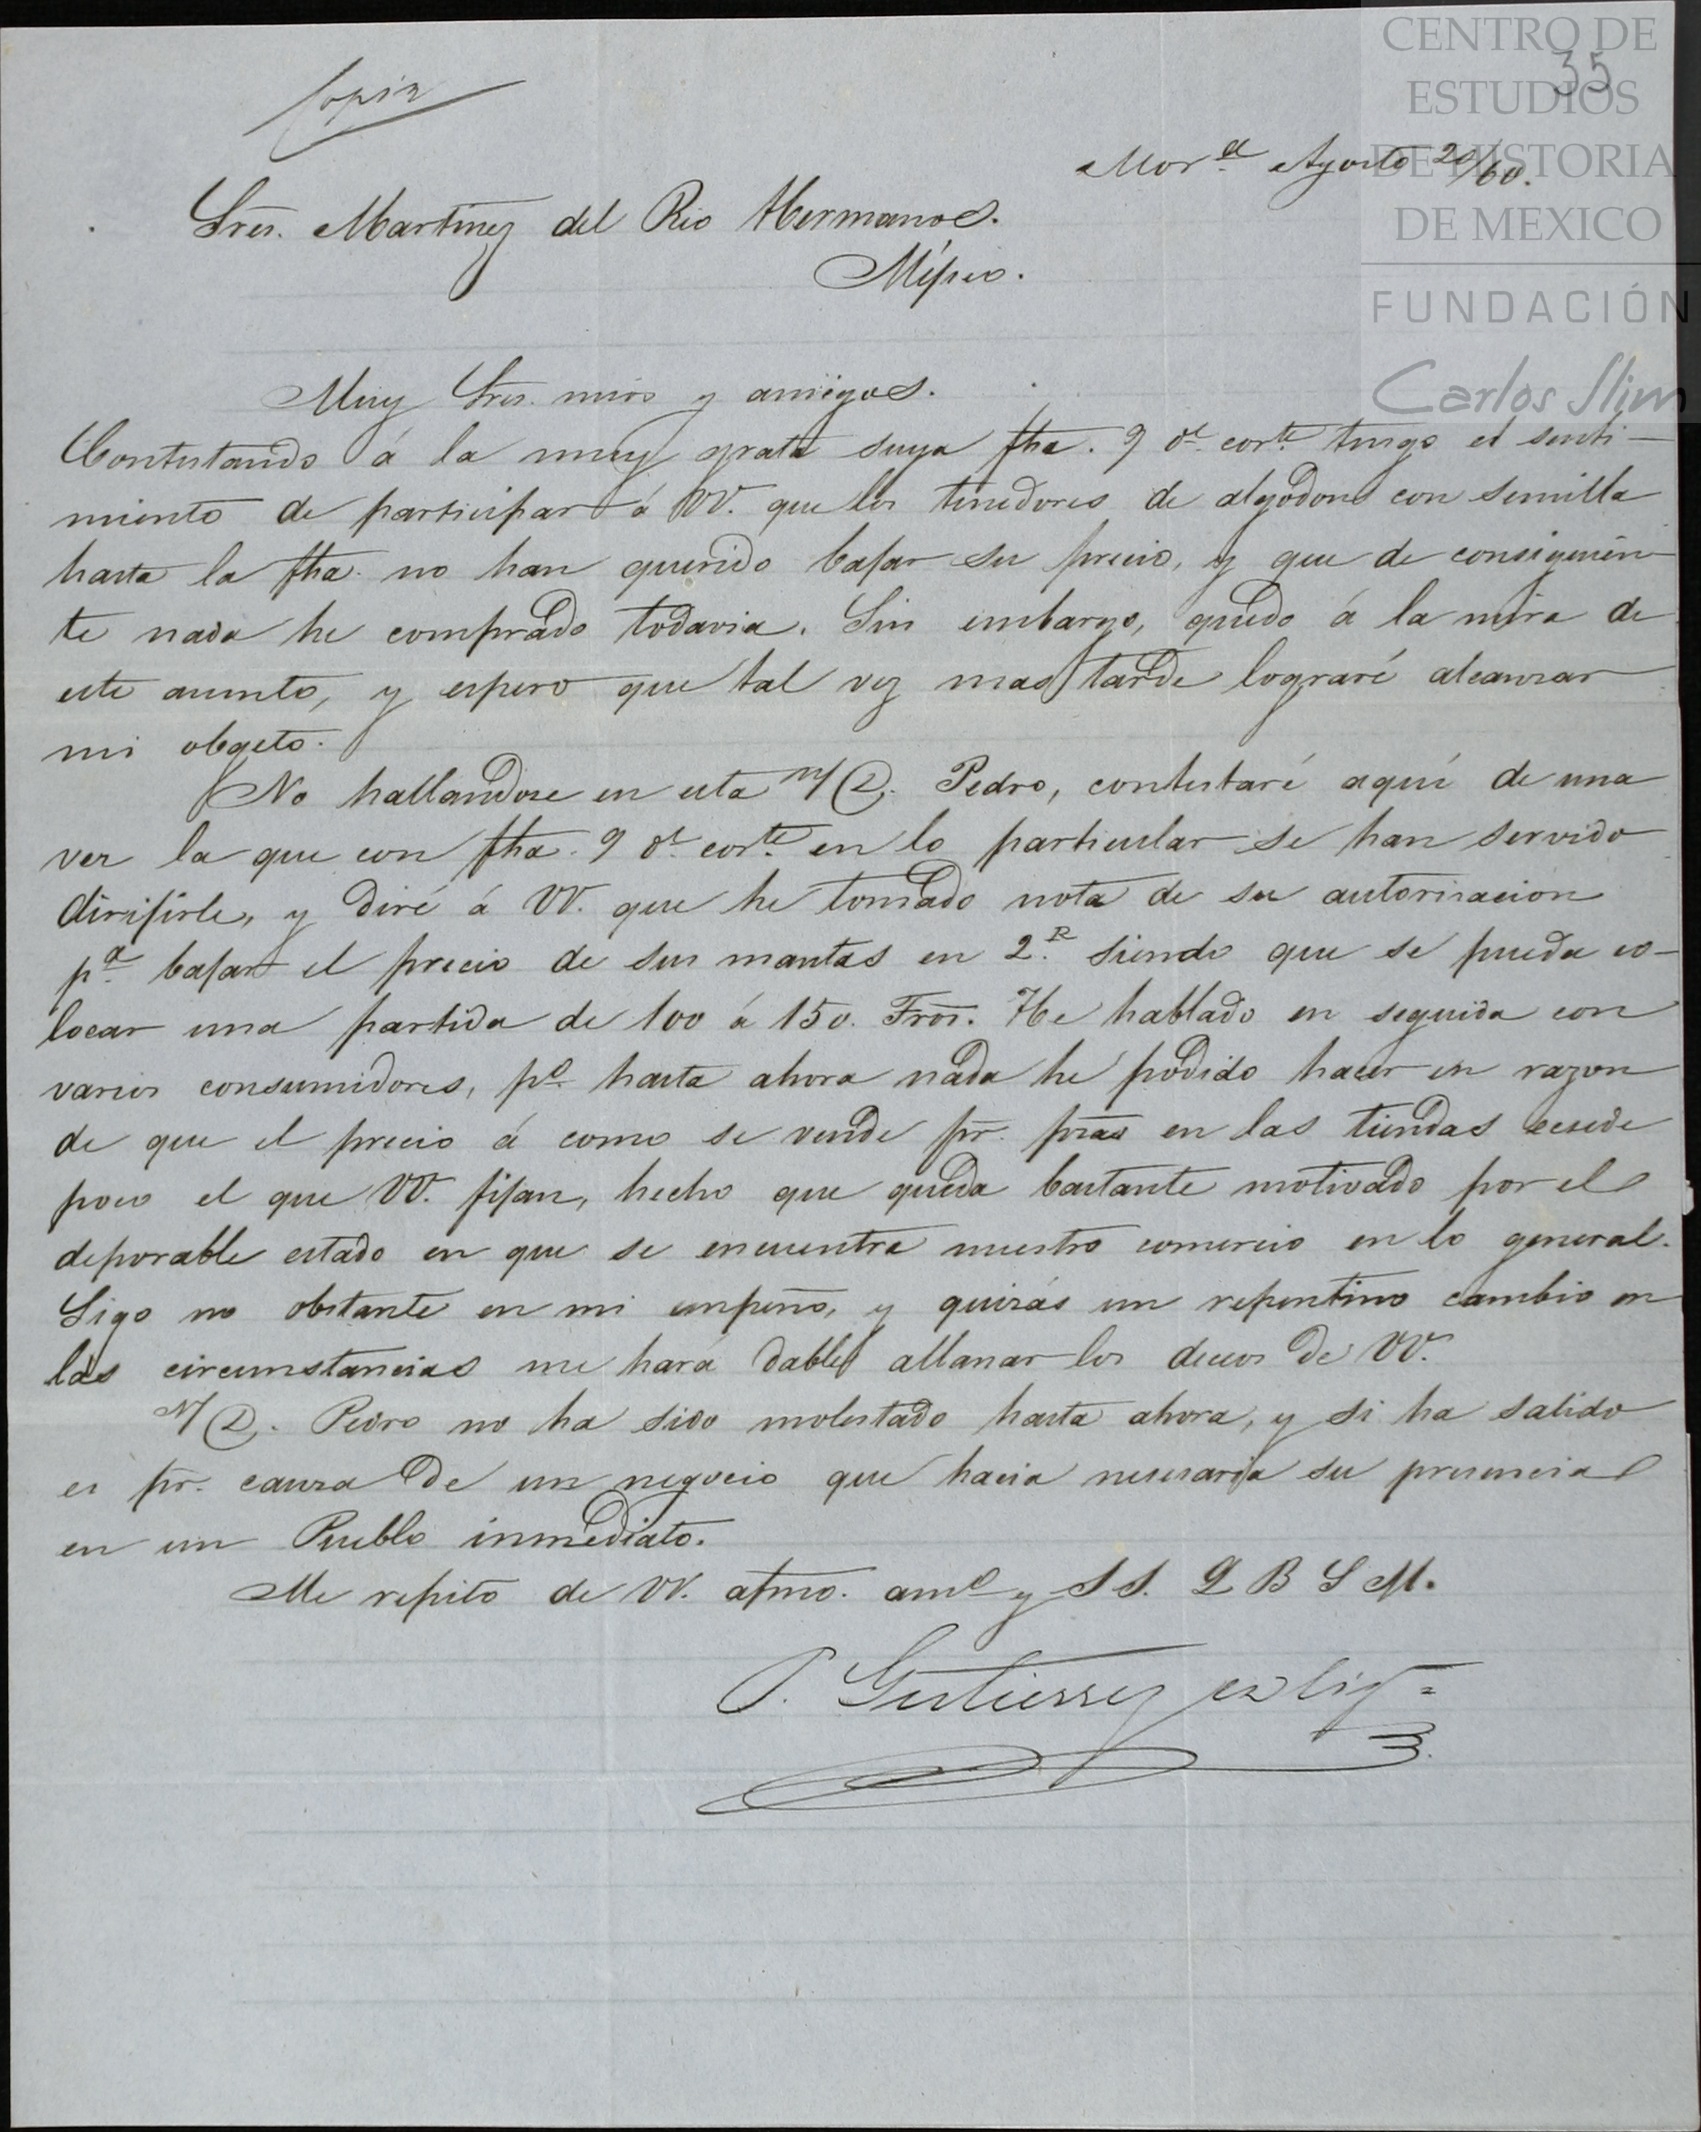 CENTRO DE
ESTUDIOS
DE HISTORIA
DE MEXICO
FUNDACIÓN
Carlos Slim
35
Copia
Morª Agosto 20/60.
Sres. Martinez del Rio Hermanos.
Méjico.
Muy Sres. mios y amigos.
Contestando á la muy grata suya fha. 9 dl corte tengo el senti-
miento de participar á VV. que los tenedores de algodon con semilla
hasta la fha. no han querido bajar su precio, y que de consiguien
te nada he comprado todavia. Sin embargo, quedo á la mira de
este asunto, y espero que tal vez mas tarde lograré alcanzar
mi obgeto.
No hallandose en esta n/D. Pedro, contestaré aquí de una
vez la que con fha. 9 dl corte en lo particular se han servido
dirijirle, y diré á VV. que he tomado nota de su autorisacion
pª bajar el precio de sus mantas en 2.R siendo que se pueda co-
locar una partida de 100 á 150. Fros. He hablado en seguida con
varios consumidores, pº hasta ahora nada he podido hacer en razon
de que el precio á como se vende pr. pzas en las tiendas ecsede
poco el que VV. fijan, hecho que queda bastante motivado por el
deporable estado en que se encuentra nuestro comercio en lo general.
Sigo no obstante en mi empeño, y quizás un repentino cambio en
las circunstancias me hará dable allanar los deceos de VV.
N/D. Pedro no ha sido molestado hasta ahora, y si ha salido
es pr. causa de un negocio que hacia necesaria su presencia
en un Pueblo inmediato.
Me repito de VV. afmo. amº y S S. Q B S M.
P. Gutierrez